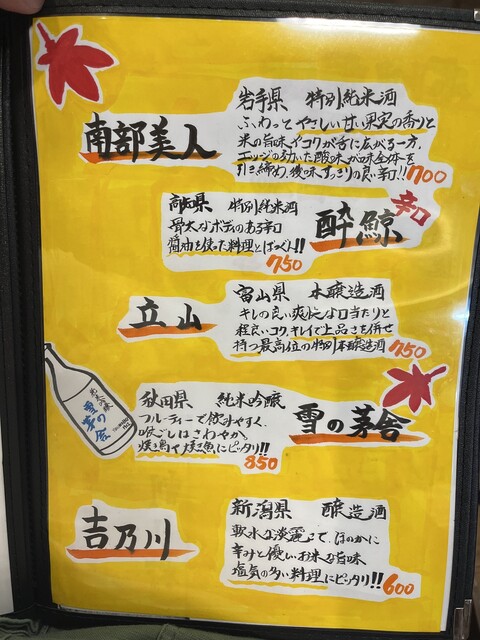 南部美人
岩手県 特別純米酒
ふわっとやさしい甘い果実の香りと
米の旨味、コクが舌に広がる一方、
エッジの効いた酸味が味全体を
引き締め、後味すっきりの良い辛口!! 700
高知県 特別純米酒
骨太なボディのある辛口
醤油を使った料理とばつぐん!!
750
酔鯨
辛口
立山
富山県 本醸造酒
キレの良い爽快な口当たりと
程良いコク、キレイで上品さを併せ
持つ最高位の特別本醸造酒 750
秋田県 純米吟醸
フルーティーで飲みやすく、
喉ごしはさわやか。
焼き鳥や焼き魚にピッタリ!!
850
雪の茅舎
純米吟醸
雪の茅舎
吉乃川
新潟県 醸造酒
軟水な淡麗って、ほのかに
辛みと優しいお米な旨味
塩気の多い料理にピッタリ!! 600